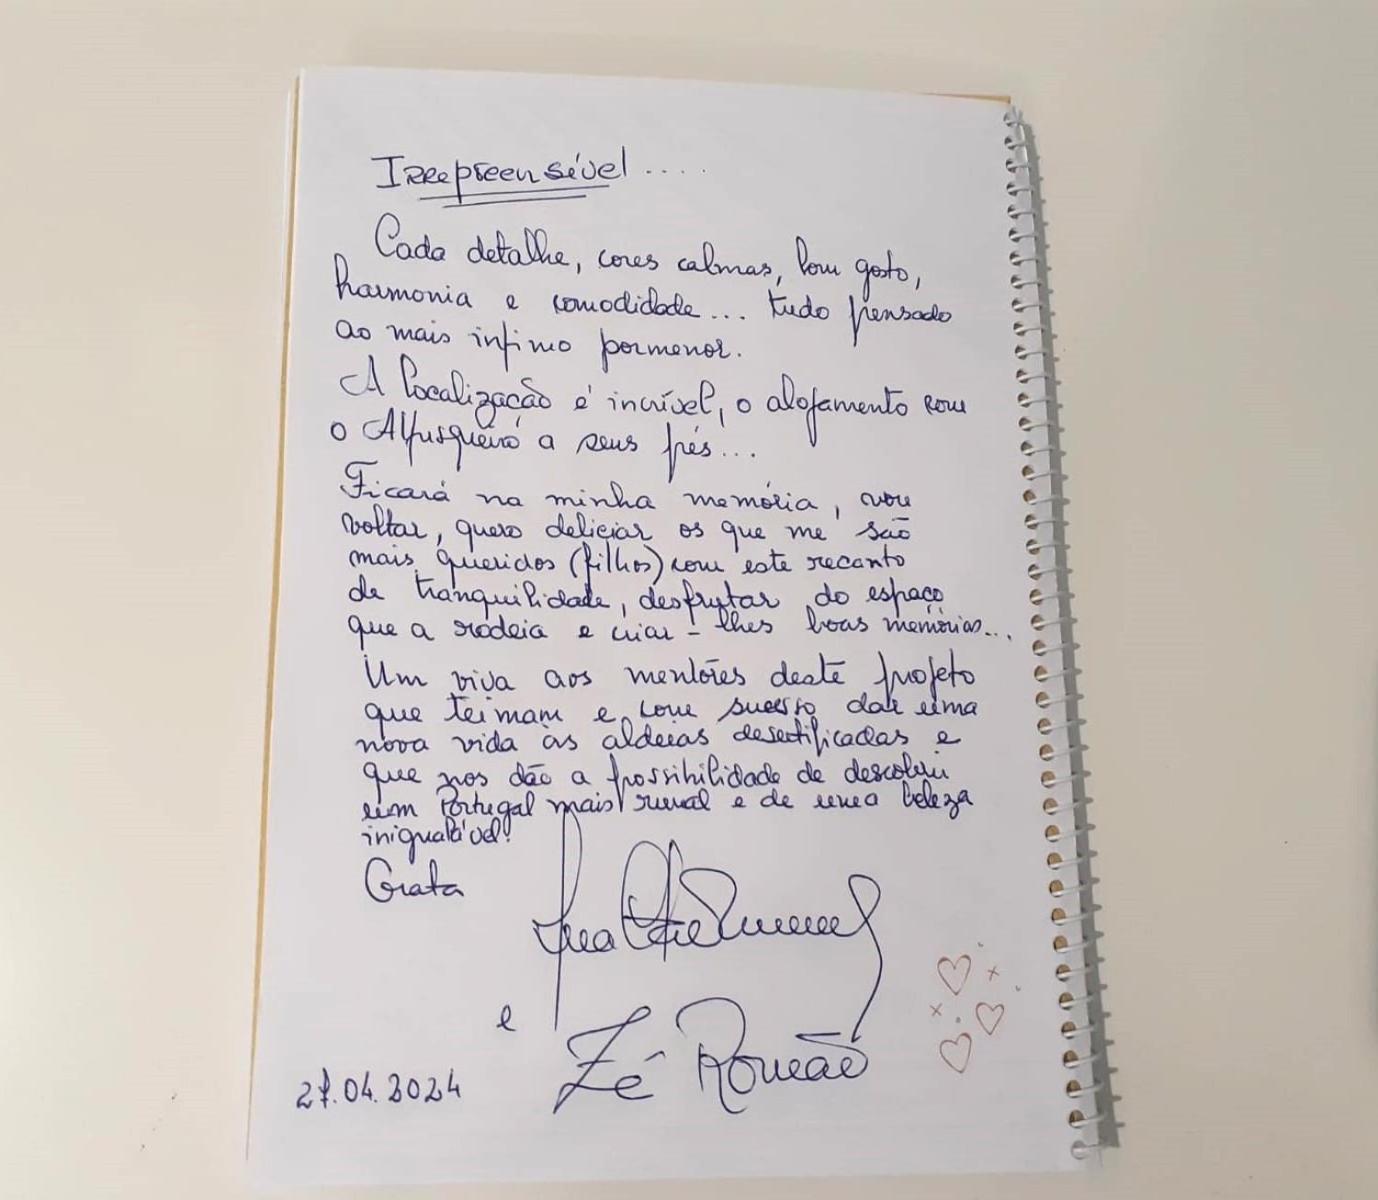 Irrepreensível ....
Cada detalhe, cores calmas, bom gosto,
harmonia e comodidade... tudo pensado
ao mais infimo pormenor.
A localização é incrível, o alojamento com
o Alfusqueiro a seus pés...
Ficará na minha memória, vou
voltar, quero deliciar os que me são
mais queridos (filhos) com este recanto
de tranquilidade, desfrutar do espaço
que a rodeia e criar-lhes boas memórias...
Um viva aos mentores deste projeto
que teimam e com sucesso dar uma
nova vida às aldeias desertificadas e
que nos dão a possibilidade de descobrir
um Portugal mais rural e de uma beleza
inigualável!
Grata
e
Zé Romão
27.04.2024